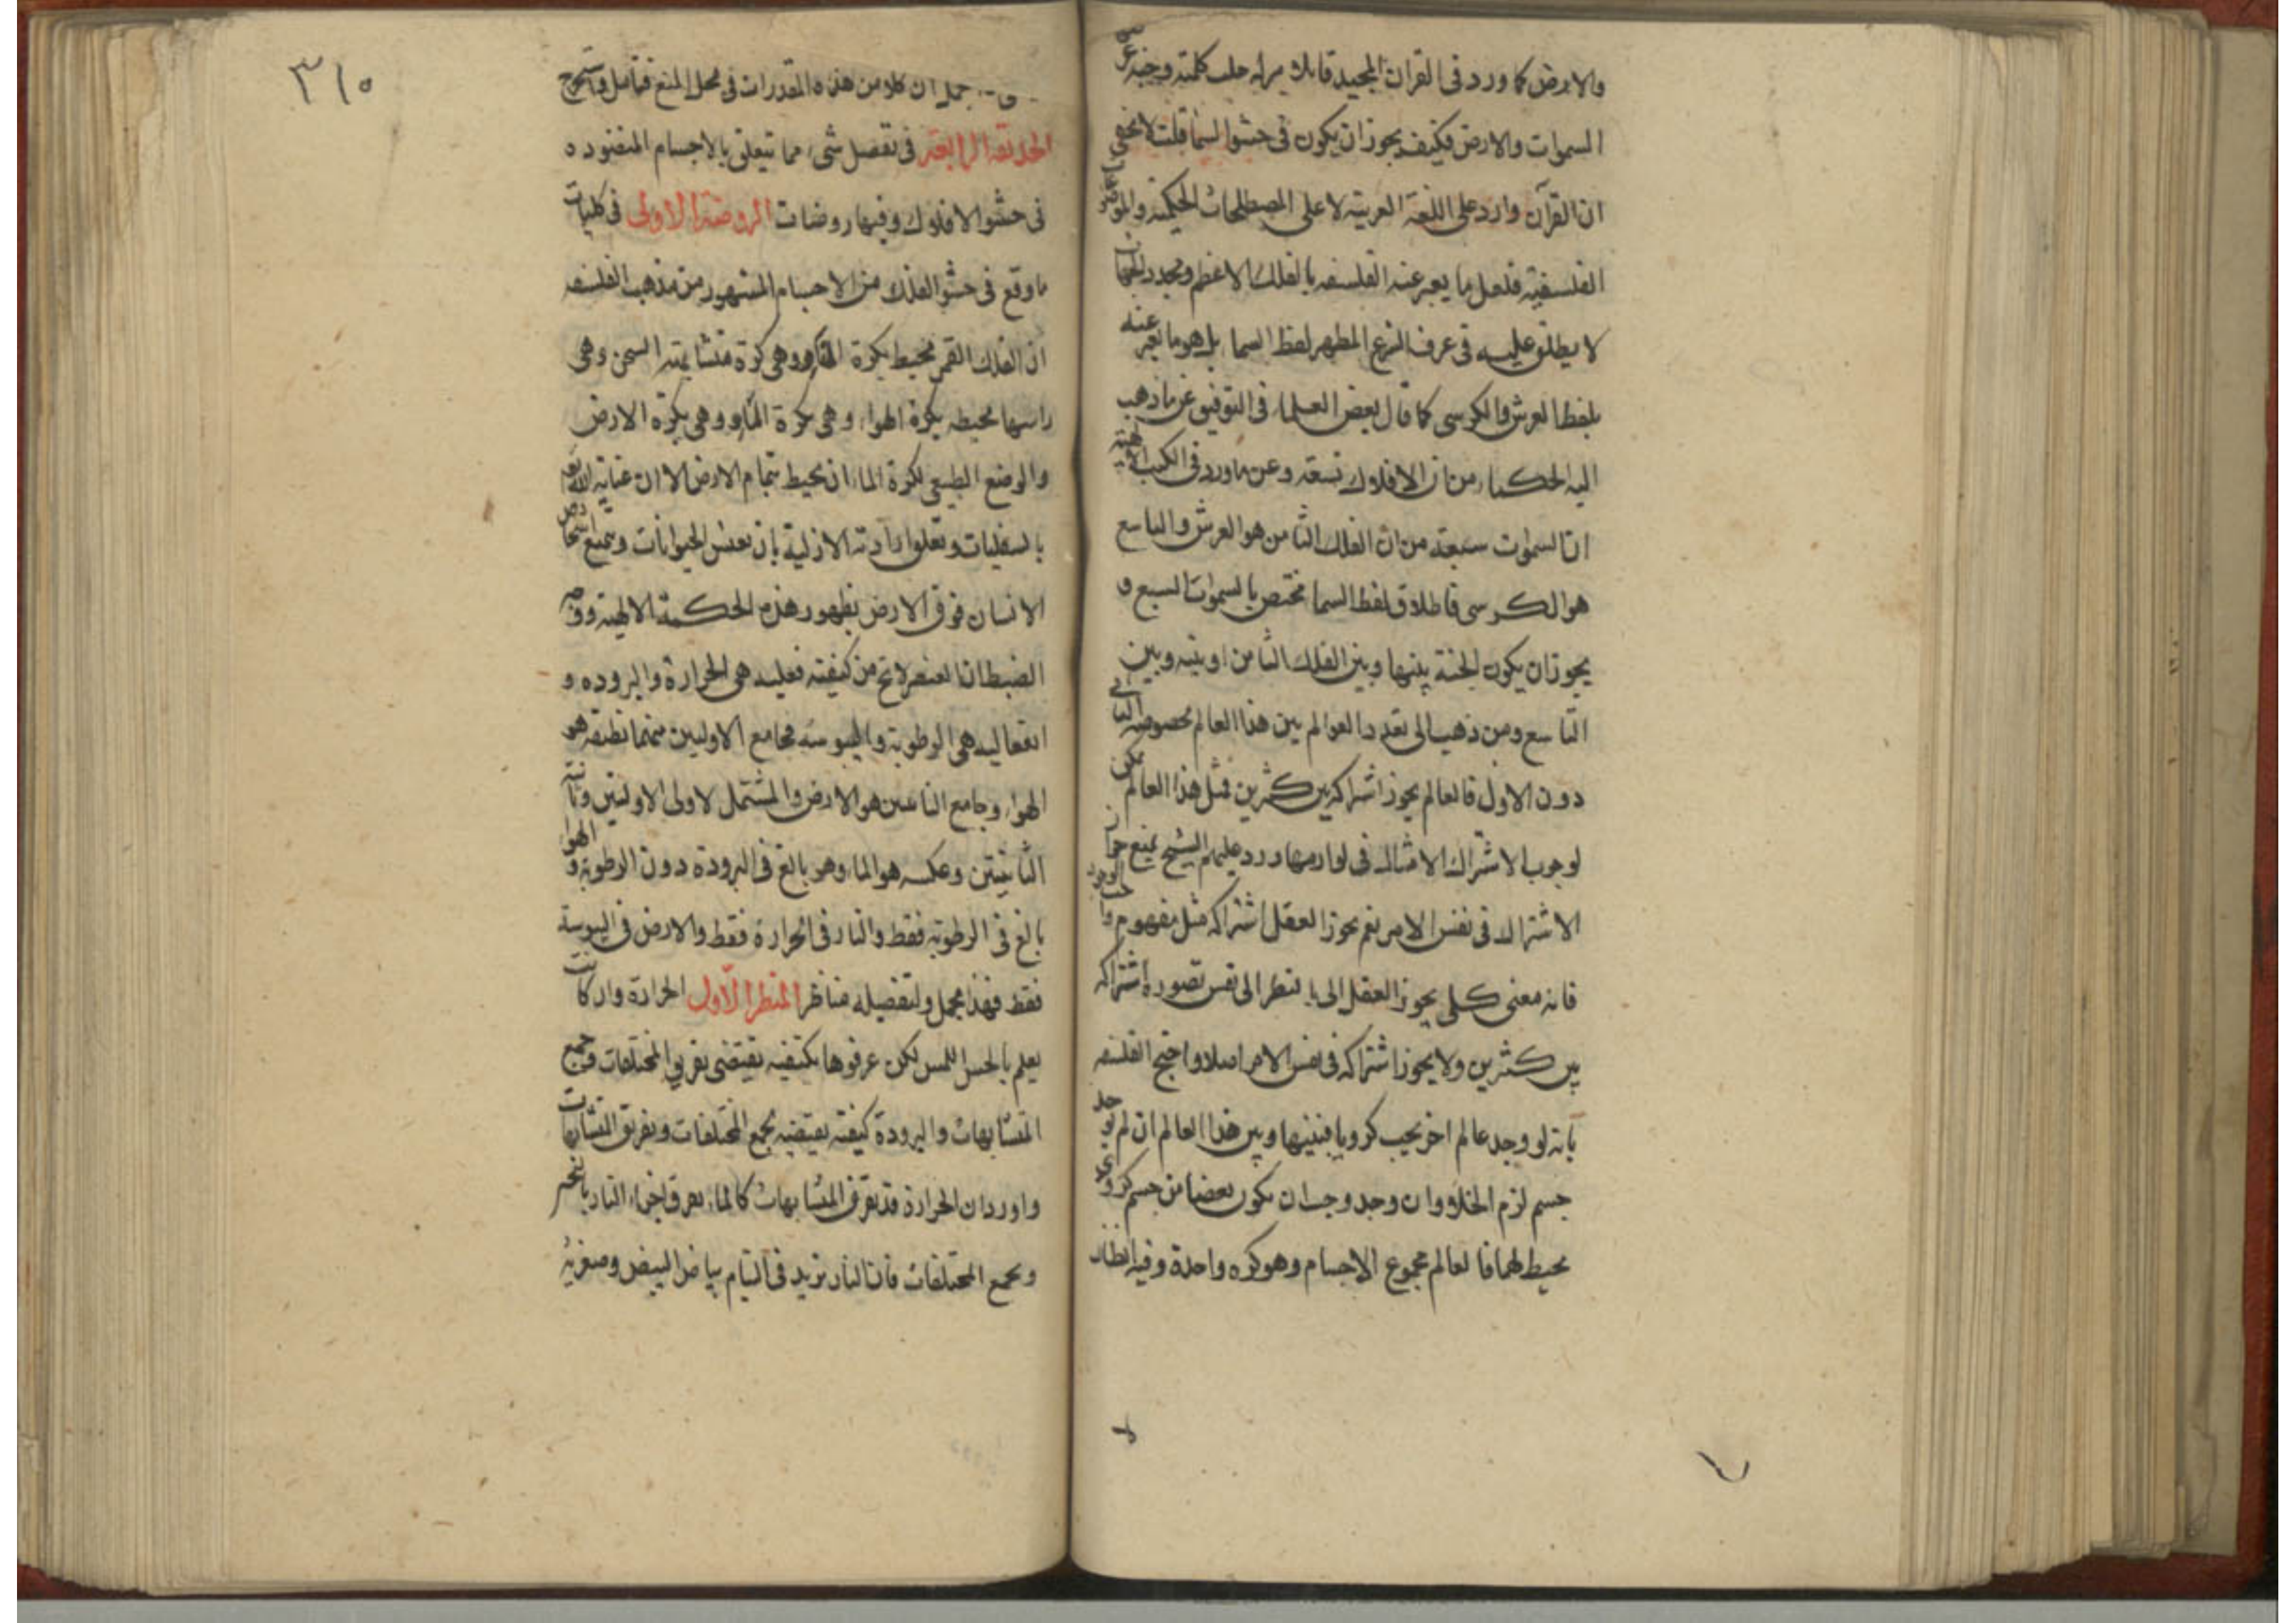 والارض كما ورد فى القران المجيد قائلا جلت كلمته وجنة عرض
السموات والارض فكيف يجوز ان يكون فى حشو السما قلت لا يخفى
ان القرآن وارد على اللغة العربية لا على المصطلحات الحكمية
الفلسفية فلعل ما يعبر عنه الفلسفه بالفلك الاعظم ومحدد الجهات
لا يطلق عليه فى عرف الشرع المطهر لفظ السما بل هو ما يعبر عنه
بلفظ العرش والكرسى كما قال بعض العلماء فى التوفيق عن ما ذهب
اليه الحكماء من ان الافلاك تسعة وعن ما ورد فى الكتب الالهية
ان السموات سبعة من ان الفلك الثامن هو العرش والتاسع
هو الكرسى فاطلاق لفظ السما مختص بالسموات السبع و
يجوز ان يكون الجنة بينها وبين الفلك الثامن او بينه وبين
التاسع ومن ذهب الى تعدد العوالم بين هذا العالم بخصوصه
دون الاول فالعالم يجوز اشراكه بين كثيرين فمثل هذا العالم ممكن
لوجوب الاشتراك الامثال فى لوازمها ورد عليهم الشيخ بمنع جواز
الاشتراك فى نفس الامر نعم يجوز العقل اشتراكه مثل مفهوم واجب الوجود
فانه معنى كلى يجوز العقل بالنظر الى نفس تصوره اشتراكه
بين كثيرين ولا يجوز اشتراكه فى نفس الامر اصلا واحتج الفلسفه
بانه لو وجد عالم اخر يجب كرويا فبينها وبين هذا العالم ان لم يوجد
جسم لزم الخلاء وان وجد وجب ان يكون بعضا من جسم كروى
محيط لهما فالعالم مجموع الاجسام وهو كره واحدة وفيه انظار
٣١٥
جمل ان كلا من هذه المقدرات فى محل المنع فتامل
الحديقة الرابعة فى تفصل شىء مما يتعلق بالاجسام المنضوده
فى حشو الافلاك وفيها روضات الروضة الاولى فى كليات
ما وقع فى حشو الفلك من الاجسام المشهور من مذهب الفلسفه
ان الفلك القمر محيط بكرة النار وهى كرة متشابهة السخن وهى
راسها محيطه بكرة الهواء وهى بكرة الماء وهى بكرة الارض
والوضع الطبيعى لكرة الماء ان يحيط بتمام الارض الا ان عناية الله
بالسفليات وتعلق ارادته الازلية بان يعيش الحيوانات
الانسان فوق الارض بظهور هذه الحكمة الالهية
الضبط ان العنصر لا يخ من كيفيته فعليه هى الحرارة والبروده و
انفعاليه هى الرطوبة واليبوسه فجامع الاوليين هو
الهواء وجامع الثانيتين هو الارض والمشتمل لاولى الاوليتين وثانية
الثانيتين وعكسه هو الماء وهو بالغ فى البرودة دون الرطوبة والهواء
بالغ فى الرطوبة فقط والنار فى الحرارة فقط والارض فى اليبوسة
فقط فهذا مجمل ولتفصيله مناظر المنظر الاول الحرارة وان كانت
يعلم بالحس اللمس لكن عرفوها بكيفيه يقتضى تفريق المختلفات وجمع
المتشابهات والبرودة كيفية يقتضيه بجمع المختلفات وتفريق المتشابهات
واورد ان الحرارة قد تفرق المتشابهات كالماء يفرق اجزاء النار بالتبخر
وبجمع المختلفات فان النار تزيد فى التيام بياض البيض وصفرته